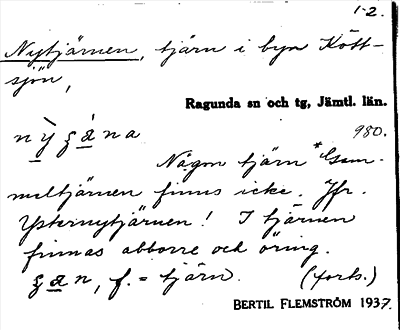 1-2.
Nytjärnen, tjärn i byn Kött-
sjön,
Ragunda sn och tg, Jämtl. län.
980.
Någon tjärn *Gam-
meltjärnen finns icke. Jfr.
Ysternytjärnen! I tjärnen
finnas abborre och öring.
f. = tjärn. (forts.)
BERTIL FLEMSTRÖM 1937.